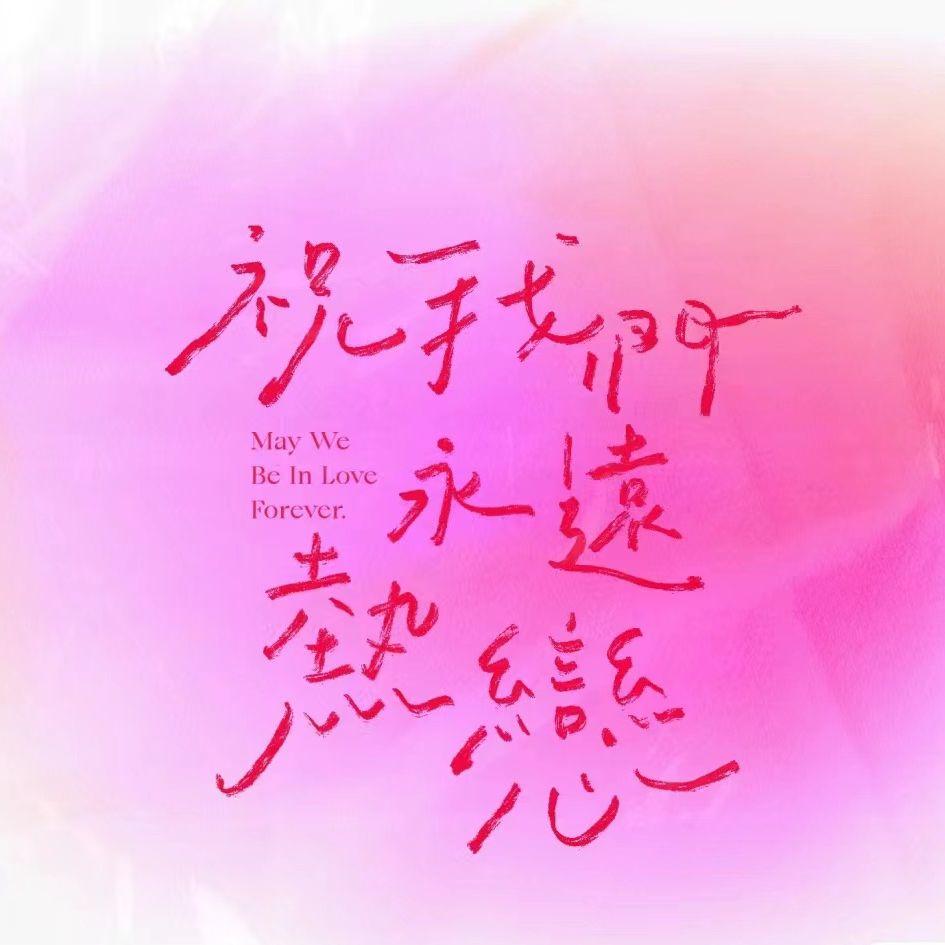 祝我們
永遠
熱戀
May We
Be In Love
Forever.